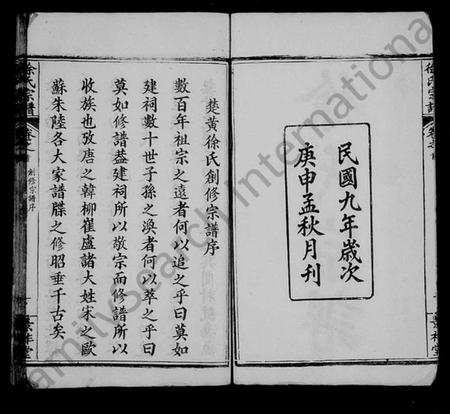 民國九年歲次
庚申孟秋月刊
楚黃徐氏創修宗譜序
數百年祖宗之遠者何以追之乎曰莫如
建祠數十世子孫之渙者何以萃之乎曰
莫如修譜葢建祠所以敬宗而修譜所以
收族也攷唐之韓柳崔盧諸大姓宋之歐
蘇朱陸各大家譜牒之修昭垂千古矣
徐氏宗譜
創修宗譜序
FamilySearch International